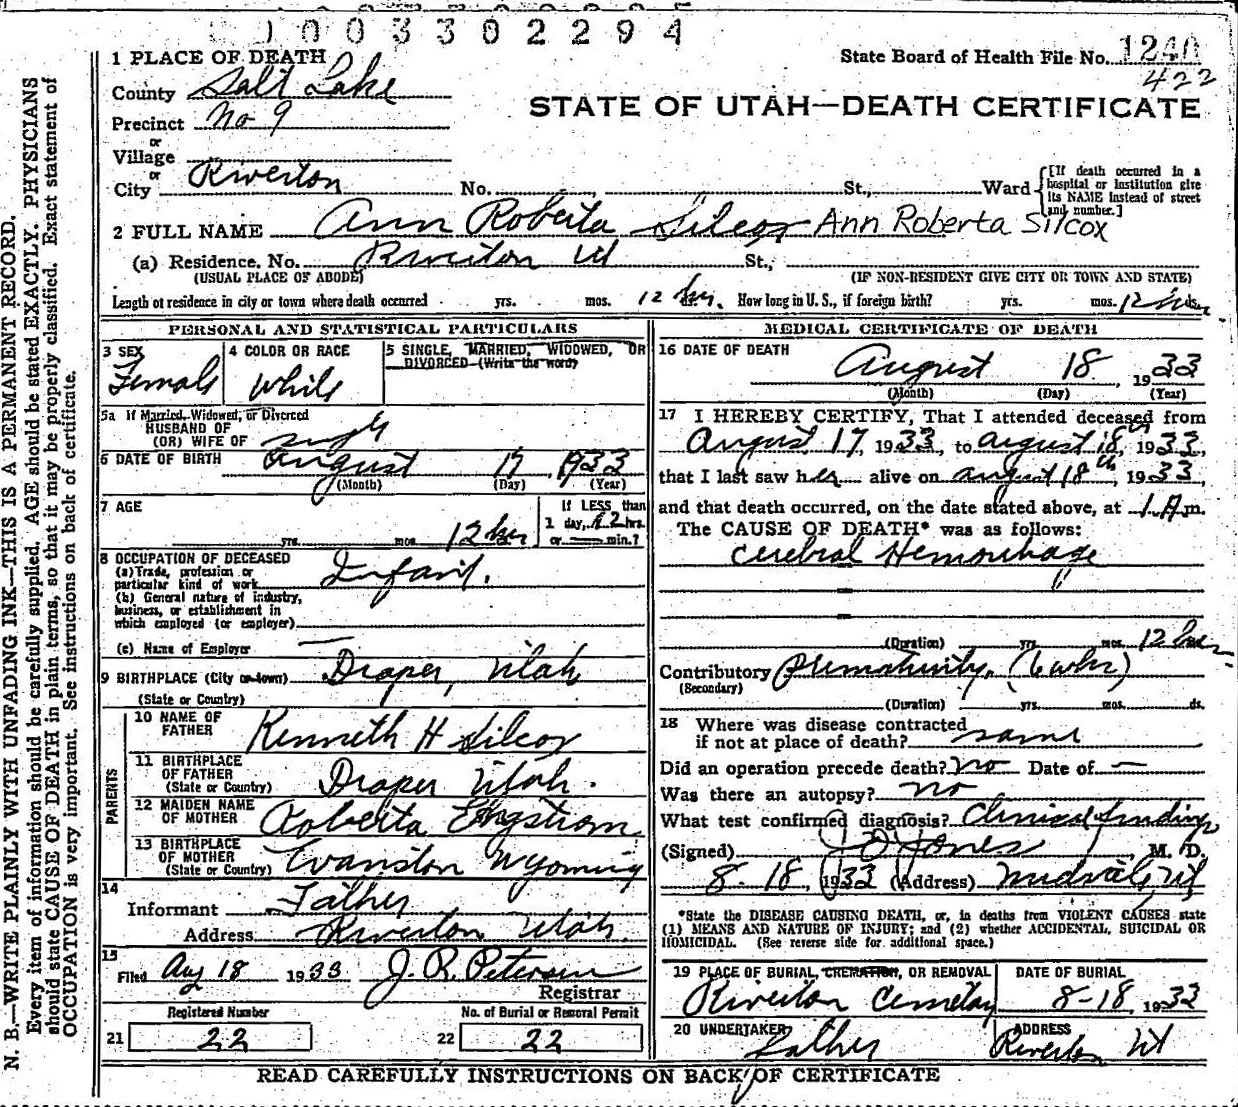 1003302294
1 PLACE OF DEATH
State Board of Health File No. 1240
422
County Salt Lake
STATE OF UTAH—DEATH CERTIFICATE
Precinct No 9
or
Village
or
City Riverton No. , St., Ward
[If death occurred in a
hospital or institution give
its NAME instead of street
and number.]
2 FULL NAME Ann Roberta Silcox Ann Roberta Silcox
(a) Residence, No. Riverton Ut St.,
(USUAL PLACE OF ABODE) (IF NON-RESIDENT GIVE CITY OR TOWN AND STATE)
Length of residence in city or town where death occurred yrs. mos. 12 hrs. How long in U. S., if foreign birth? yrs. mos. 12 hrs.
PERSONAL AND STATISTICAL PARTICULARS
3 SEX
Female
4 COLOR OR RACE
White
5 SINGLE, MARRIED, WIDOWED, OR
DIVORCED (Write the word)
5a If Married, Widowed, or Divorced
HUSBAND OF
(OR) WIFE OF single
6 DATE OF BIRTH August 17 1933
(Month) (Day) (Year)
7 AGE
yrs. mos. 12 hrs
If LESS than
1 day, 12 hrs.
or min.?
8 OCCUPATION OF DECEASED
(a) Trade, profession or
particular kind of work Infant.
(b) General nature of industry,
business, or establishment in
which employed (or employer)
(c) Name of Employer
9 BIRTHPLACE (City or town) Draper, Utah
(State or Country)
PARENTS
10 NAME OF
FATHER Kenneth H Silcox
11 BIRTHPLACE
OF FATHER
(State or Country) Draper Utah.
12 MAIDEN NAME
OF MOTHER Roberta Engstrom
13 BIRTHPLACE
OF MOTHER
(State or Country) Evanston Wyoming
14
Informant Father
Address Riverton Utah.
15
Filed Aug 18 1933 J. R. Peterson
Registrar
Registered Number No. of Burial or Removal Permit
21 22 22 22
MEDICAL CERTIFICATE OF DEATH
16 DATE OF DEATH
August 18, 1933
(Month) (Day) (Year)
17 I HEREBY CERTIFY, That I attended deceased from
August 17, 1933, to August 18th, 1933,
that I last saw her alive on August 18th, 1933,
and that death occurred, on the date stated above, at 1 A.m.
The CAUSE OF DEATH* was as follows:
Cerebral Hemorrhage
(Duration) yrs. mos. 12 hrs
Contributory prematurity. (6 wks)
(Secondary)
(Duration) yrs. mos. ds.
18 Where was disease contracted
if not at place of death? same
Did an operation precede death? No Date of —
Was there an autopsy? no
What test confirmed diagnosis? Clinical findings
(Signed) J O Jones, M. D.
8-18, 1933 (Address) Midvale, Ut
*State the DISEASE CAUSING DEATH, or, in deaths from VIOLENT CAUSES state
(1) MEANS AND NATURE OF INJURY; and (2) whether ACCIDENTAL, SUICIDAL OR
HOMICIDAL. (See reverse side for additional space.)
19 PLACE OF BURIAL, CREMATION, OR REMOVAL
Riverton Cemetery
DATE OF BURIAL
8-18, 1933
20 UNDERTAKER
Father
ADDRESS
Riverton Ut
READ CAREFULLY INSTRUCTIONS ON BACK OF CERTIFICATE
N. B.—WRITE PLAINLY WITH UNFADING INK—THIS IS A PERMANENT RECORD.
Every item of information should be carefully supplied. AGE should be stated EXACTLY. PHYSICIANS
should state CAUSE OF DEATH in plain terms, so that it may be properly classified. Exact statement of
OCCUPATION is very important. See instructions on back of certificate.